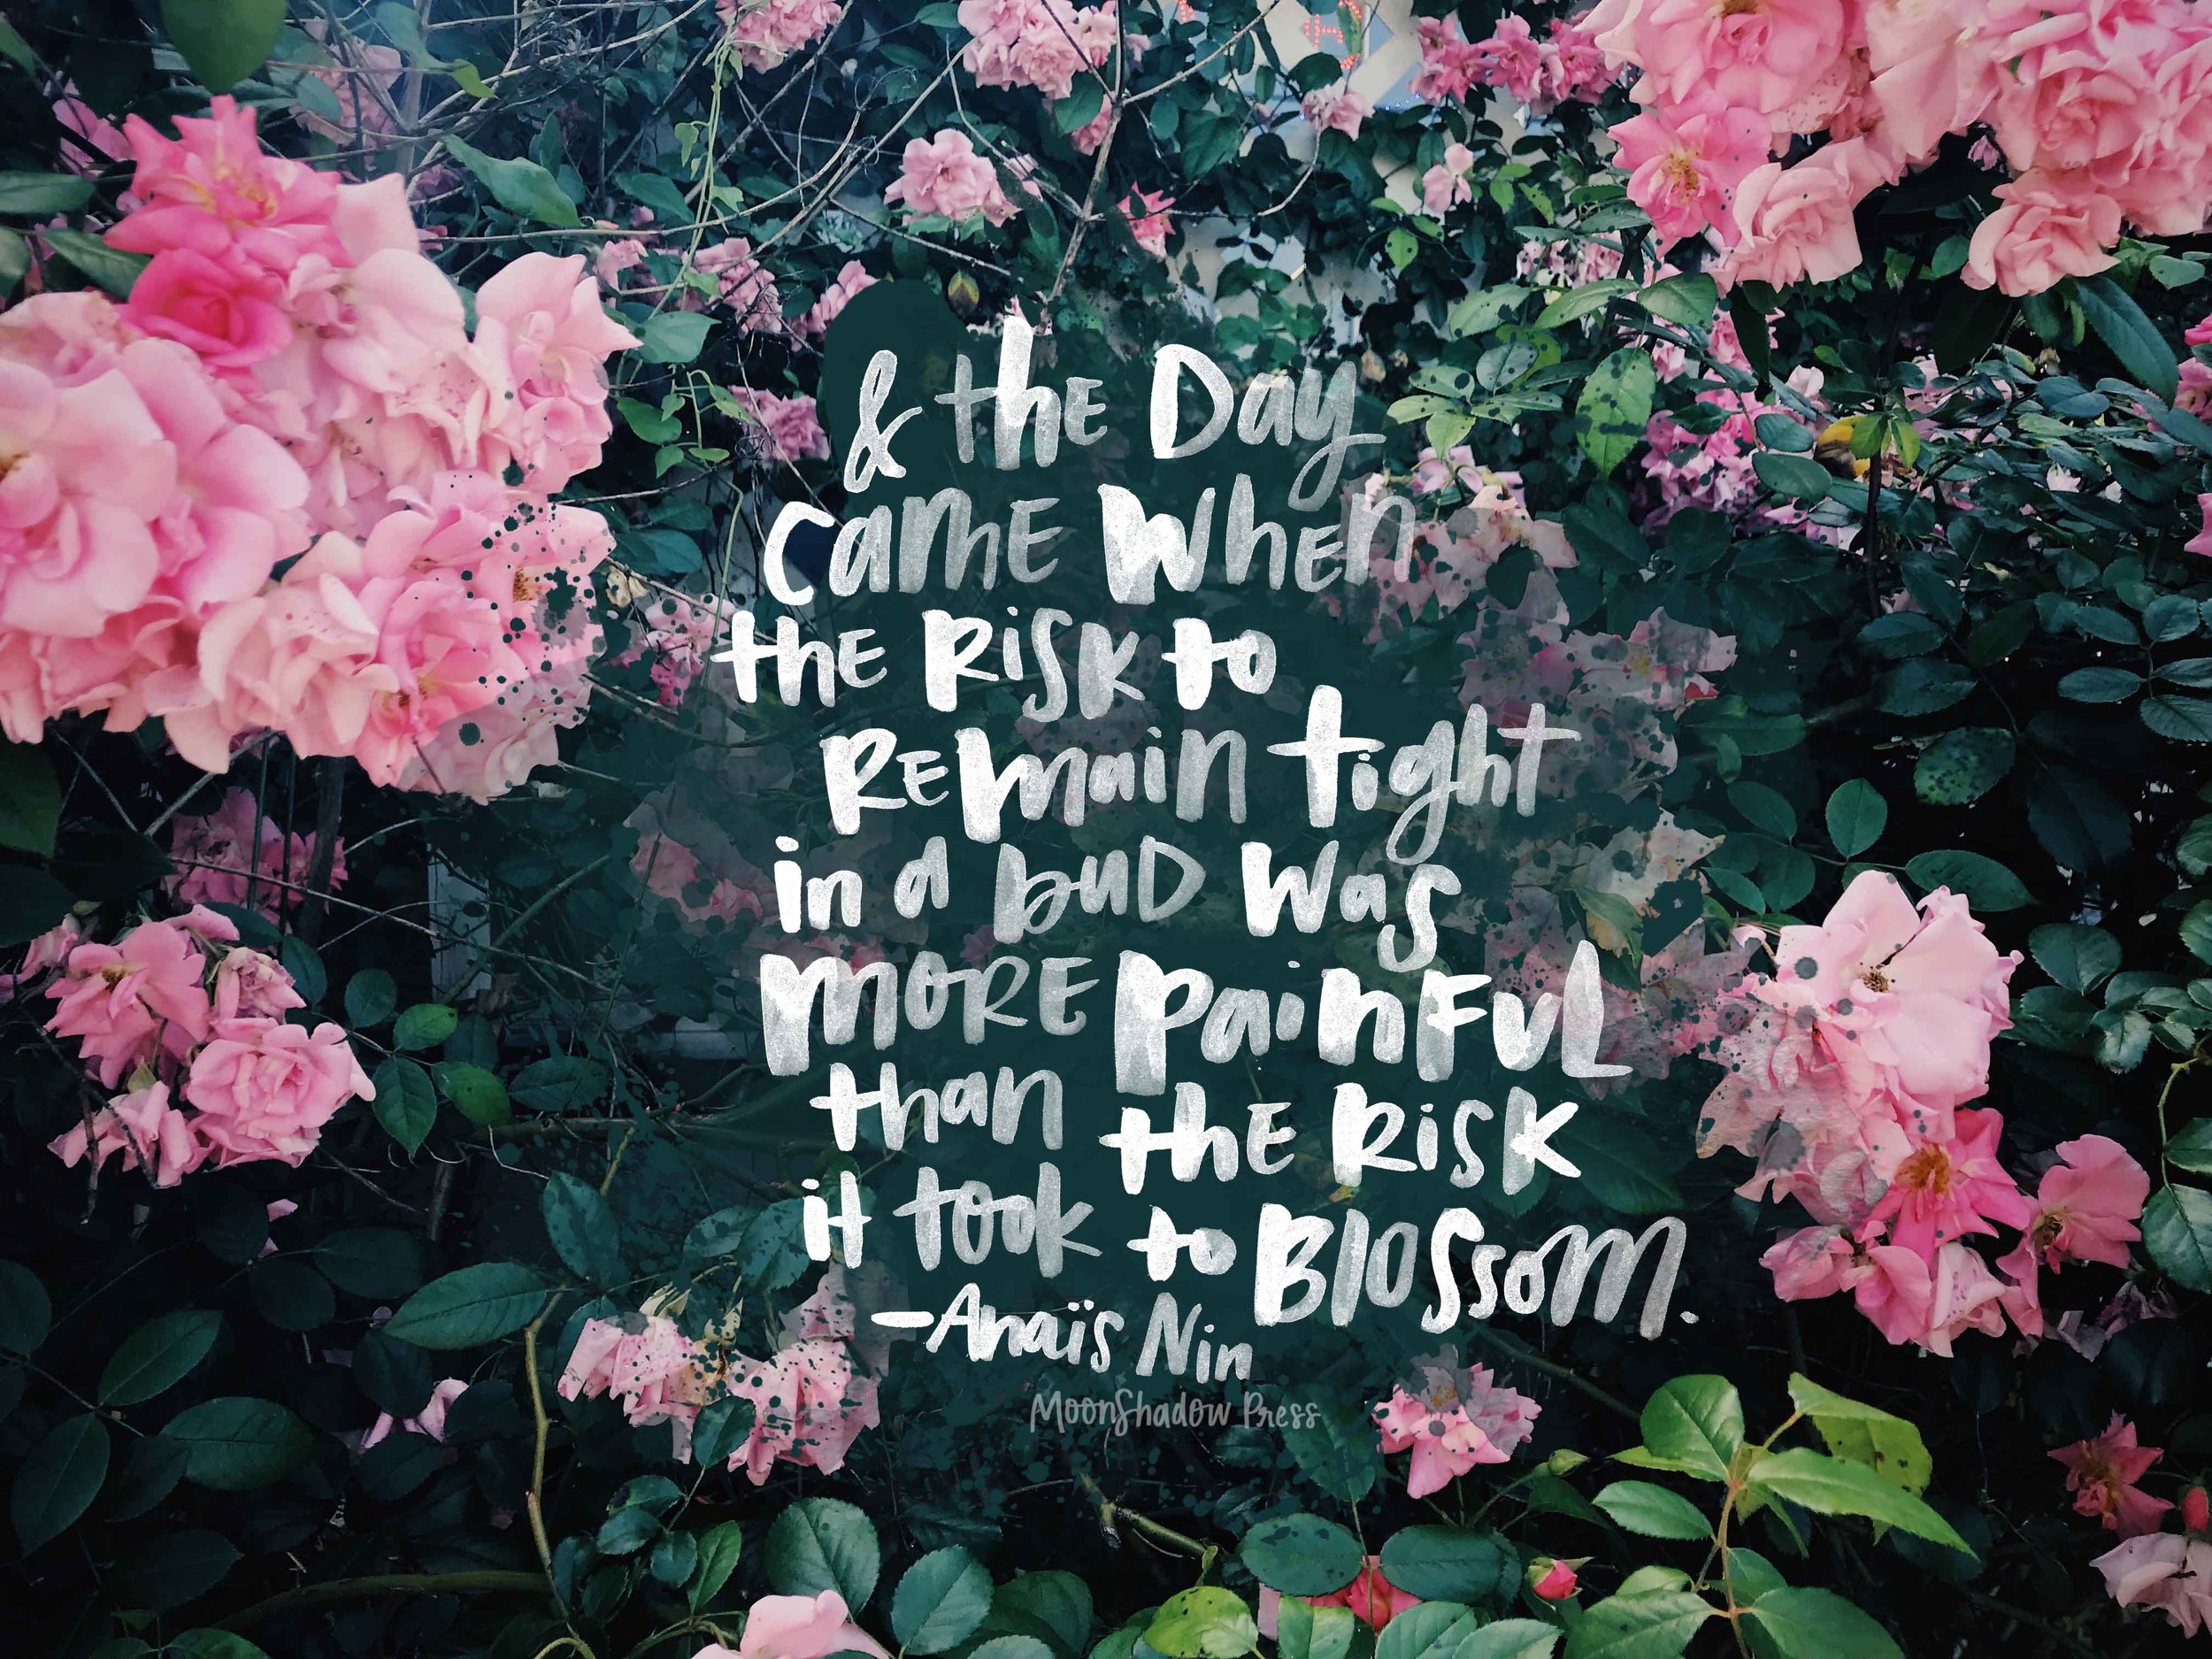 & the Day
came when
the Risk to
Remain tight
in a buD was
more painful
than the Risk
it took to Blossom.
-Anaïs Nin
MoonShadow Press